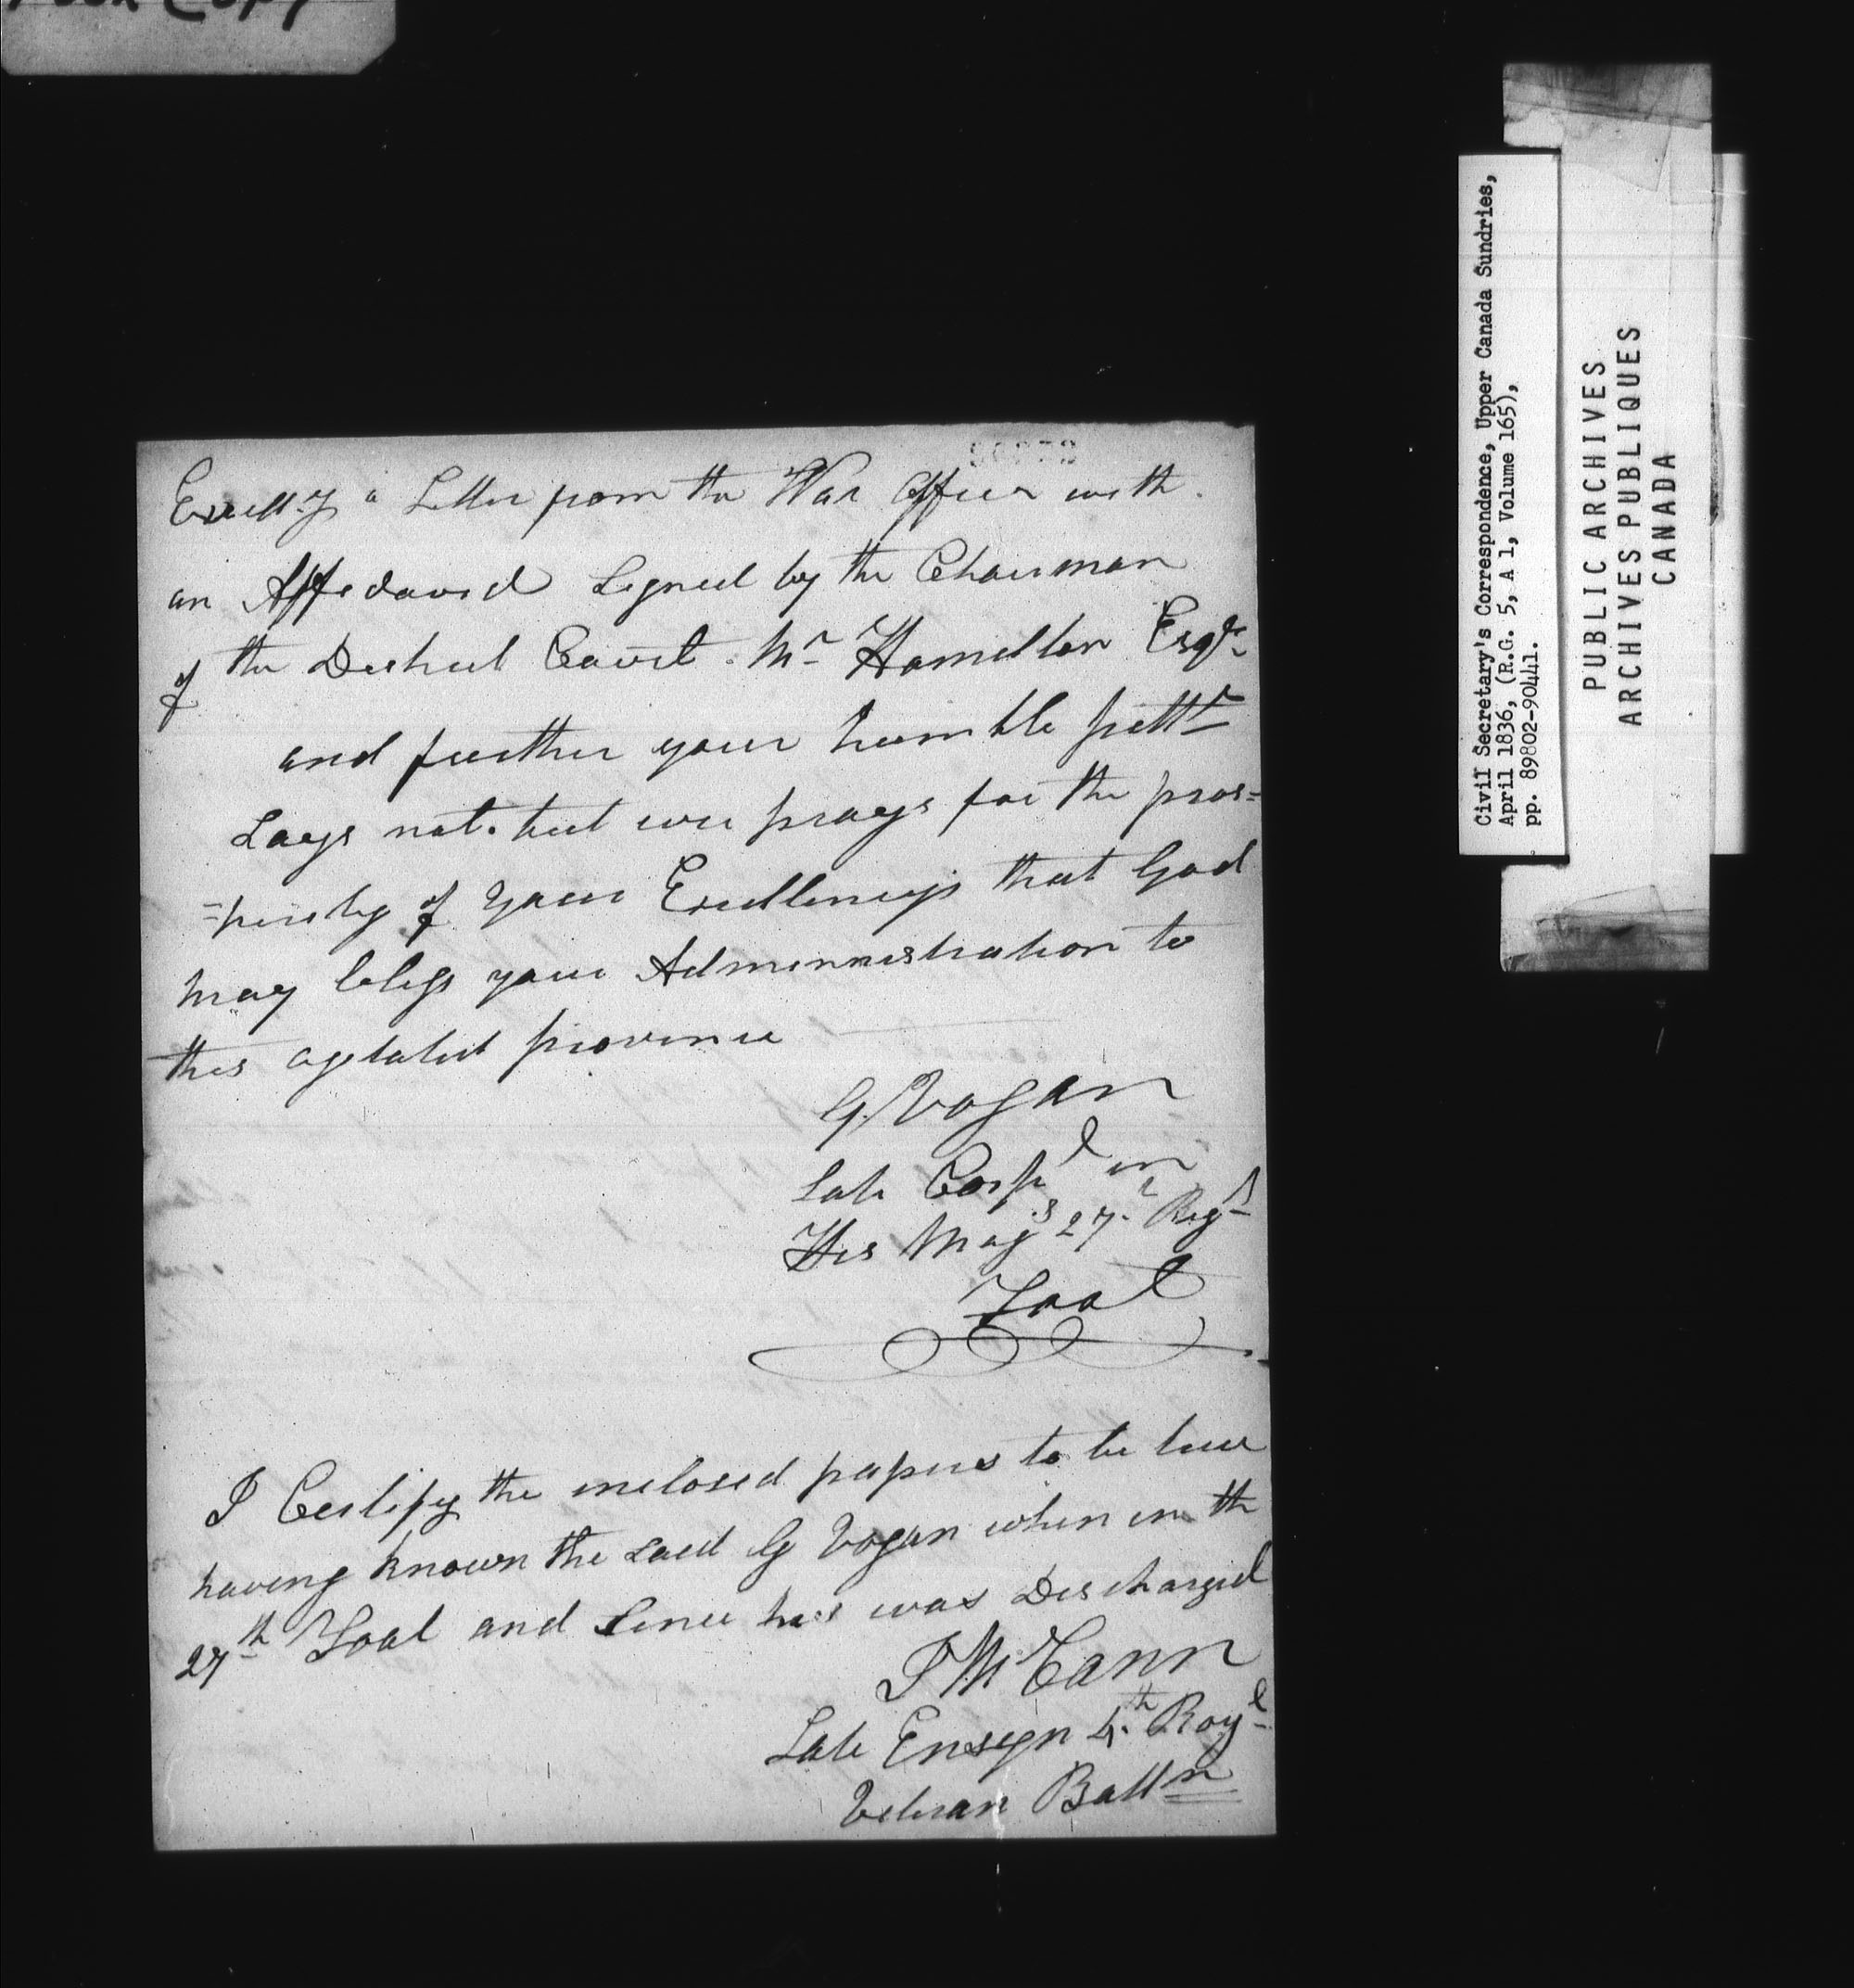 Poor Copy
Excell.y a Letter from the War Office with
an Affedavid Signed by the Chairman
of the Destrict Court Mr Hamilton Esqr
and further your humble pettr
Says not. but ever prays for the pros=
=perity of your Excellencys that God
may bless your Administration to
this agetated province
G. Vogan
Late Corpl in
His Majs 27. Regt
Foot
I Certify the inclosed papers to be true
having known the said G Vogan when in the
27th Foot and Since he was Discharged
J McCann
Late Ensign 4th Royl
Veteran Battn
Civil Secretary's Correspondence, Upper Canada Sundries,
April 1836, (R.G. 5, A 1, Volume 165),
pp. 89802-90441.
PUBLIC ARCHIVES
ARCHIVES PUBLIQUES
CANADA